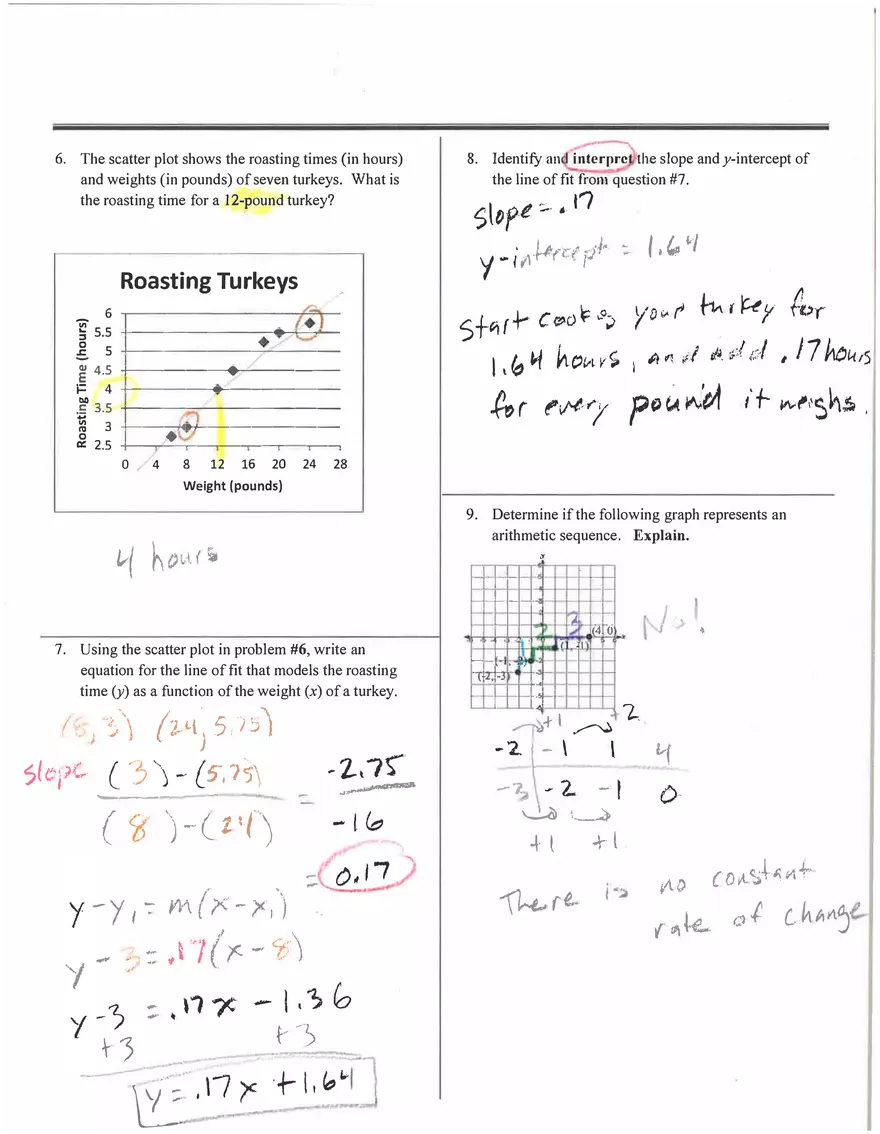 6. The scatter plot shows the roasting times (in hours)
and weights (in pounds) of seven turkeys. What is
the roasting time for a 12-pound turkey?
Roasting Turkeys
Roasting Time (hours)
6
5.5
5
4.5
4
3.5
3
2.5
0 4 8 12 16 20 24 28
Weight (pounds)
4 hours
7. Using the scatter plot in problem #6, write an
equation for the line of fit that models the roasting
time (y) as a function of the weight (x) of a turkey.
(8, 3) (24, 5.75)
slope (3)-(5.75) = -2.75
(8)-(24) -16
= 0.17
y-y₁ = m(x-x₁)
y-3 = .17(x-8)
y-3 = .17x - 1.36
+3 +3
y = .17x + 1.64
8. Identify and interpret the slope and y-intercept of
the line of fit from question #7.
slope = .17
y-intercept = 1.64
Start cooking your turkey for
1.64 hours, and add .17 hours
for every pound it weighs.
9. Determine if the following graph represents an
arithmetic sequence. Explain.
2 3 (4, 0)
(1, -1)
(-1, -2)
(-2, -3)
No!
+1 +2
-2 -1 1 4
-3 -2 -1 0
+1 +1
There is no constant
rate of change